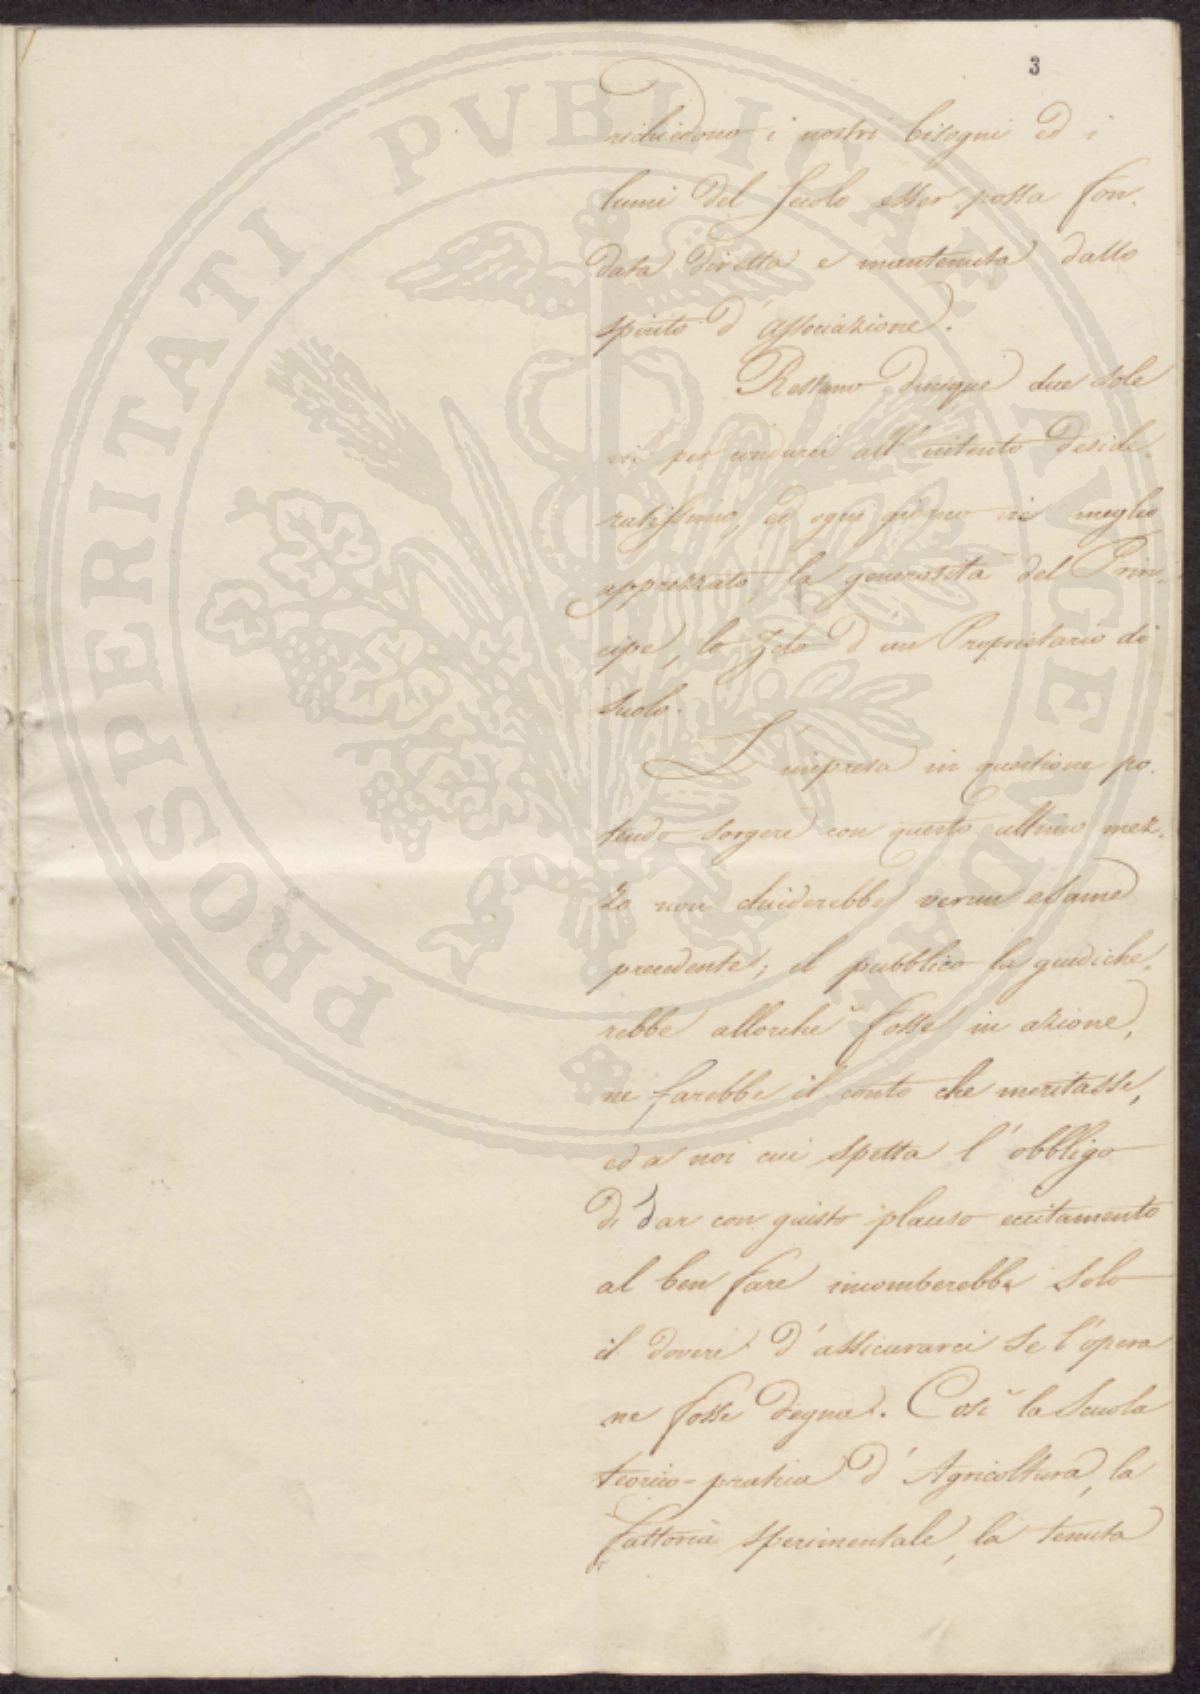 3
richiedono i nostri bisogni ed i
lumi del Secolo esser possa fon-
data diretta e mantenuta dallo
spirito d'associazione.
Restano dunque due sole
vie per condurci all'intento deside-
ratissimo, ed ogni giorno vie meglio
apprezzato, la generosità del Prin-
cipe, lo zelo d'un Proprietario di
suolo.
L'impresa in questione po-
tendo sorgere con questo ultimo mez-
zo non chiederebbe verun esame
precedente; il pubblico la giudiche-
rebbe allorchè fosse in azione,
ne farebbe il conto che meritasse,
ed a noi cui spetta l'obbligo
di dar con giusto plauso eccitamento
al ben fare incomberebbe solo
il dovere d'assicurarci se l'opera
ne fosse degna. Così la Scuola
teorico-pratica d'Agricoltura, la
fattoria sperimentale, la tenuta
PROSPERITATI PVBLICAE AVGENDAE